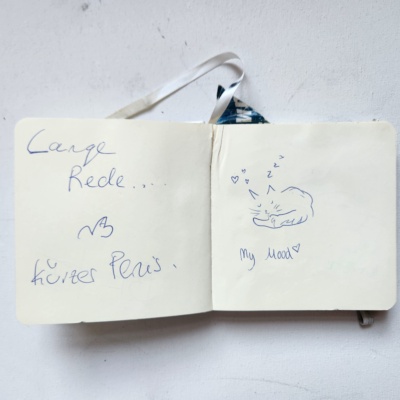 Lange
Rede....
kürzes Penis.
z z z
My Mood